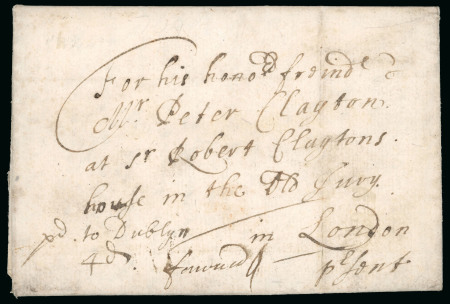 For his hono:d freind
Mr. Peter Clayton.
at Sr Robert Claytons.
house in the Old Jury.
pd. to Dublyn in London
4d. prsent